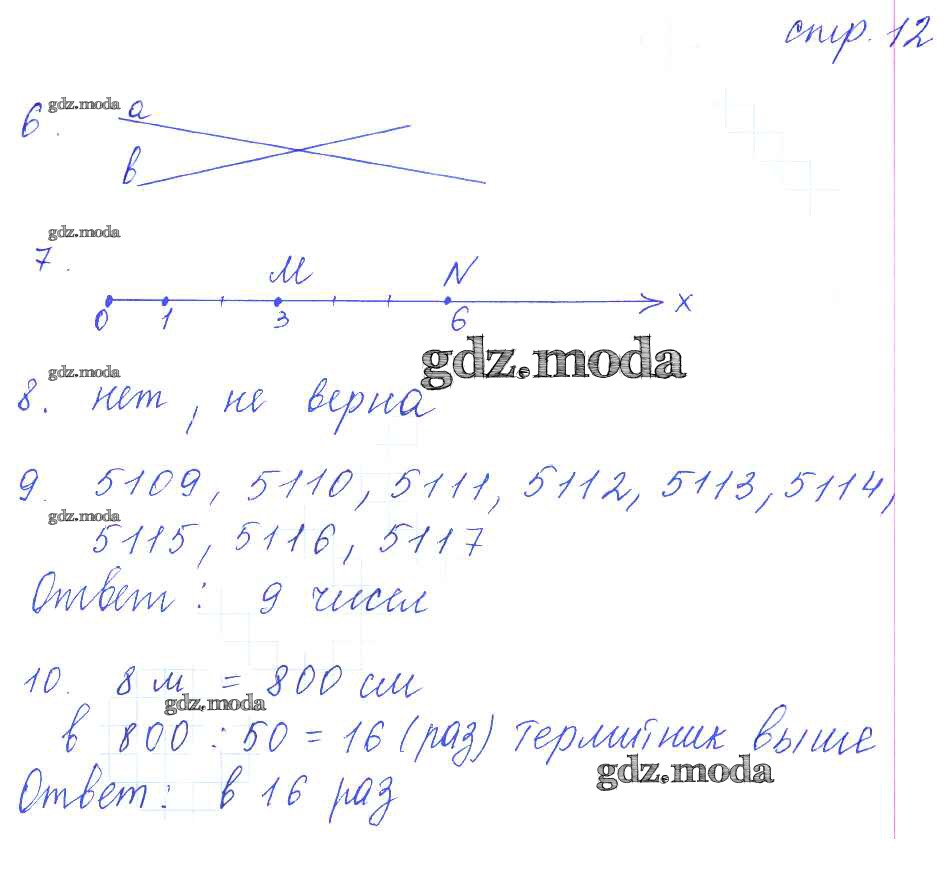 стр. 12
gdz.moda
6. a
b
gdz.moda
7.
M N
0 1 3 6 x
gdz.moda
gdz.moda
8. нет, не верна
9. 5109, 5110, 5111, 5112, 5113, 5114,
gdz.moda
5115, 5116, 5117
Ответ: 9 чисел
10. 8 м = 800 см
gdz.moda
в 800 : 50 = 16 (раз) термитник выше
gdz.moda
Ответ: в 16 раз